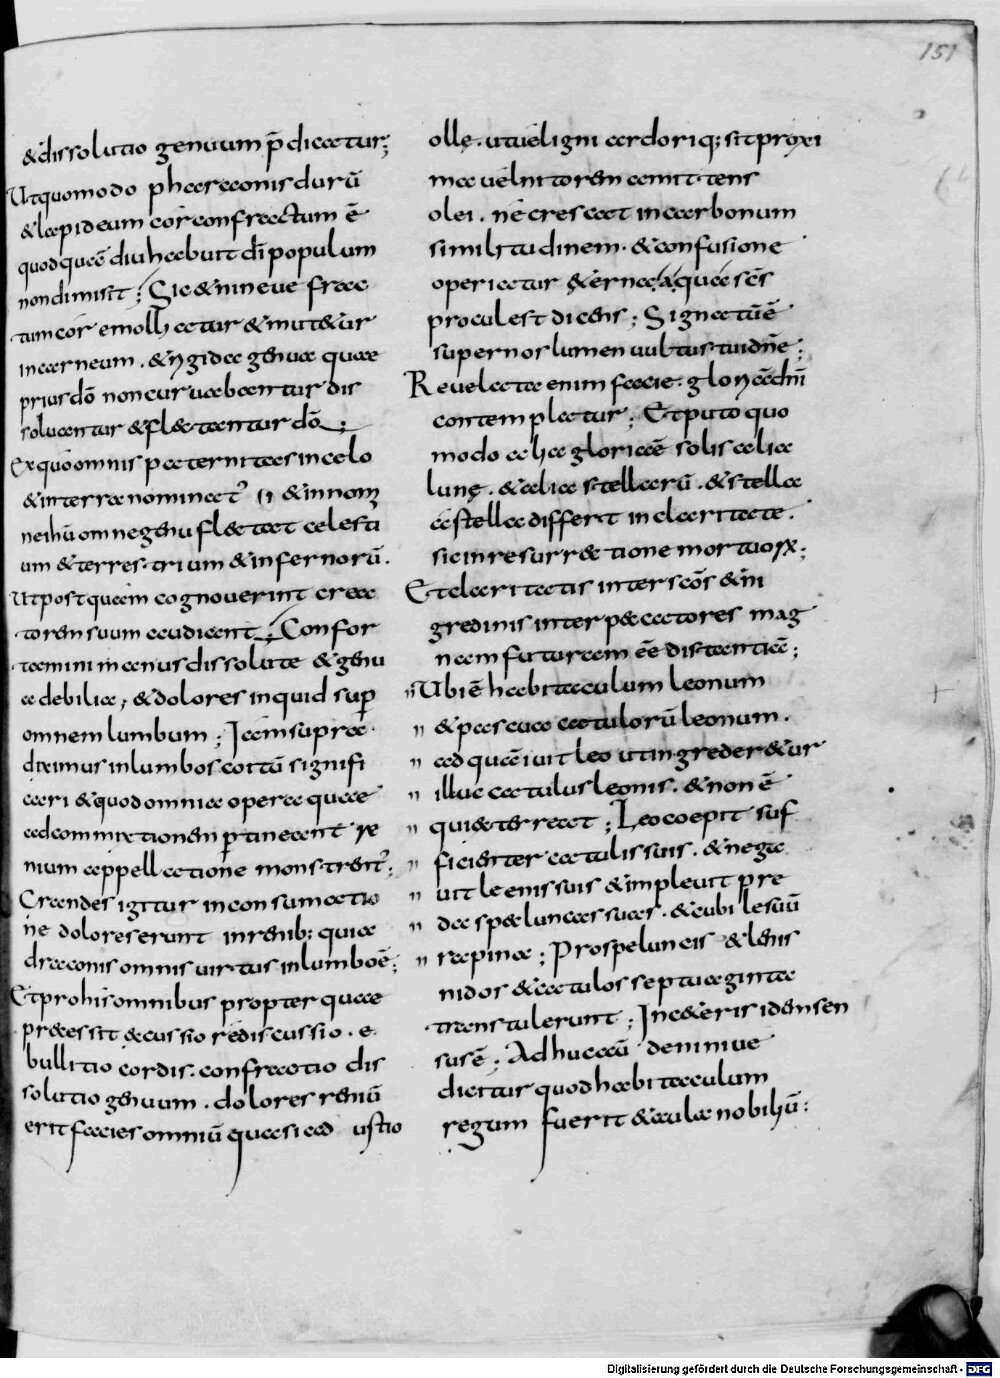 151
&dissolutio genuum p̄dicatur;
Utquomodo pharaonis durū
&lapideum cor confractum ē
quodquā diu habuit dī populum
non dimisit; Sic & nineue frac
tum cor emollatur & mut&ur
in carneum. & rigida genua quae
prius dō non curuabantur dis
soluantur & flectantur dō;
Ex quo omnis paternitas in celo
& in terra nominat̄ & in nom
ne ihū omne genu flectat celesti
um & terrestrium & infernorū.
Ut postquam cognouerint crea
torem suum audiant; Confor
tamini manus dissolute & genu
a debilia; & dolores inquid sup̄
omnem lumbum; Iam supra
diximus in lumbos coitū signifi
cari & quod omnia opera quae
ad commixtionem p̄tineant re
nium appellatione monstrent̄;
Creandes igitur in consumatio
ne dolores erunt in renib: quia
draconis omnis uirtus in lumbo ē;
Et pro his omnibus propter quae
praecessit excussio rediscussio. e
bullitio cordis. confractio dis
solutio genuum. dolores reniū
erit facies omniū quasi ad ustio
ollę. ut uel igni cardoriq; sit proxi
ma uel nitorem amittens
olei. nec rescat in carbonum
similitudinem. & confusione
operiatur & ernea aqua sēs
procul est dicens; Signatū ē
super nos lumen uultus tui dn̄e;
Reuelata enim facie. gloriā dn̄i
contemplatur; Et puto quo
modo alia gloria ē solis alia
lunę. & alia stellarū. & stella
a stella differt in claritate.
sic in resurrectione mortuoꝝ;
Et claritatis inter sc̄os & ni
gredinis inter peccatores mag
nam futuram eē distantiā;
" Ubi ē habitaculum leonum
" & pascua catulorū leonum.
" ad quē iuit leo ut ingreder&ur
" illuc catulus leonis. & non ē
" qui exterreat; Leo coepit suf
" ficienter catulis suis. & neca
" uit leenis suis & impleuit pre
" da speluncas suas. & cubile suū
" rapina; Pro speluncis & lenis
nidos & catulos septuaginta
transtulerunt; In ceteris idem sen
sus ē; Adhuc cū de niniue
dicitur quod habitaculum
regum fuerit & aula nobiliū:
Digitalisierung gefördert durch die Deutsche Forschungsgemeinschaft - DFG